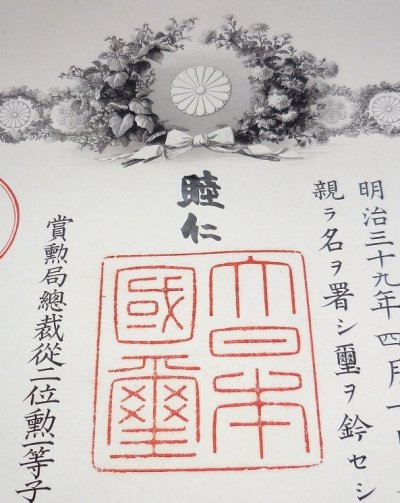 明治三十九年四月一日
親ラ名ヲ署シ璽ヲ鈐セシ
睦仁
大日本
國璽
賞勲局總裁從二位勲一等子